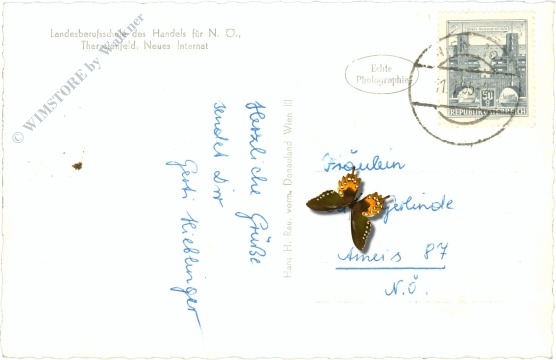 Landesberufsschule des Handels für N. Ö.,
Theresienfeld, Neues Internat
© WIMSTORE by Waukner
Echte
Photographie
50
REPUBLIK ÖSTERREICH
Herzliche Grüße
sendet Dir
Gerti Hieblinger
Hans H. Rau, vorm. Donauland Wien III
Fräulein
Gerlinde
Ameis 87
N.Ö.